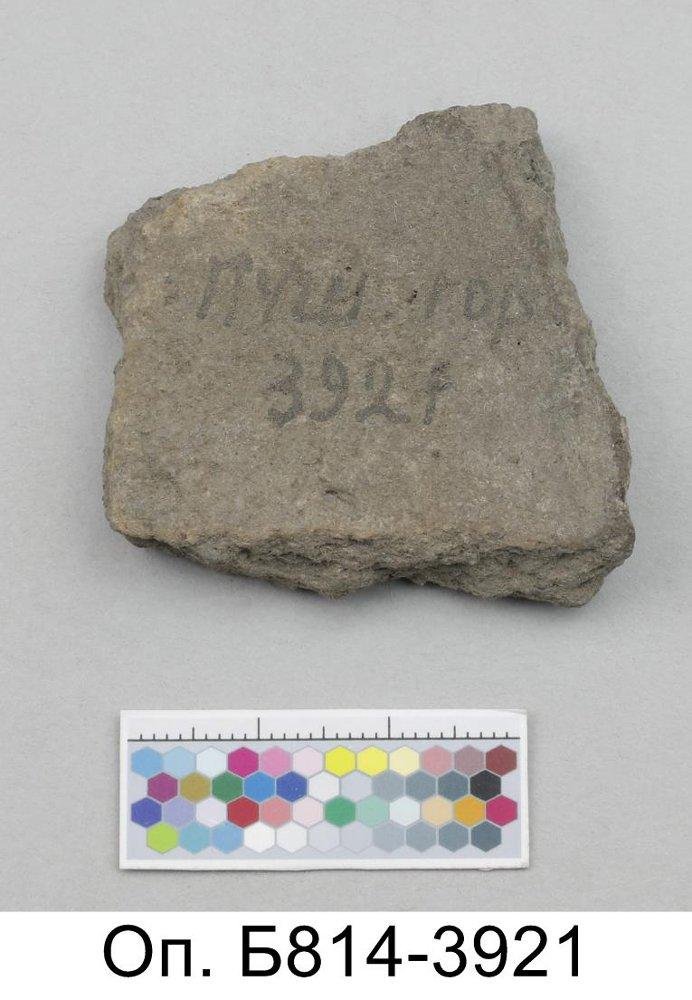 Пуш. гор
3921
Оп. Б814-3921